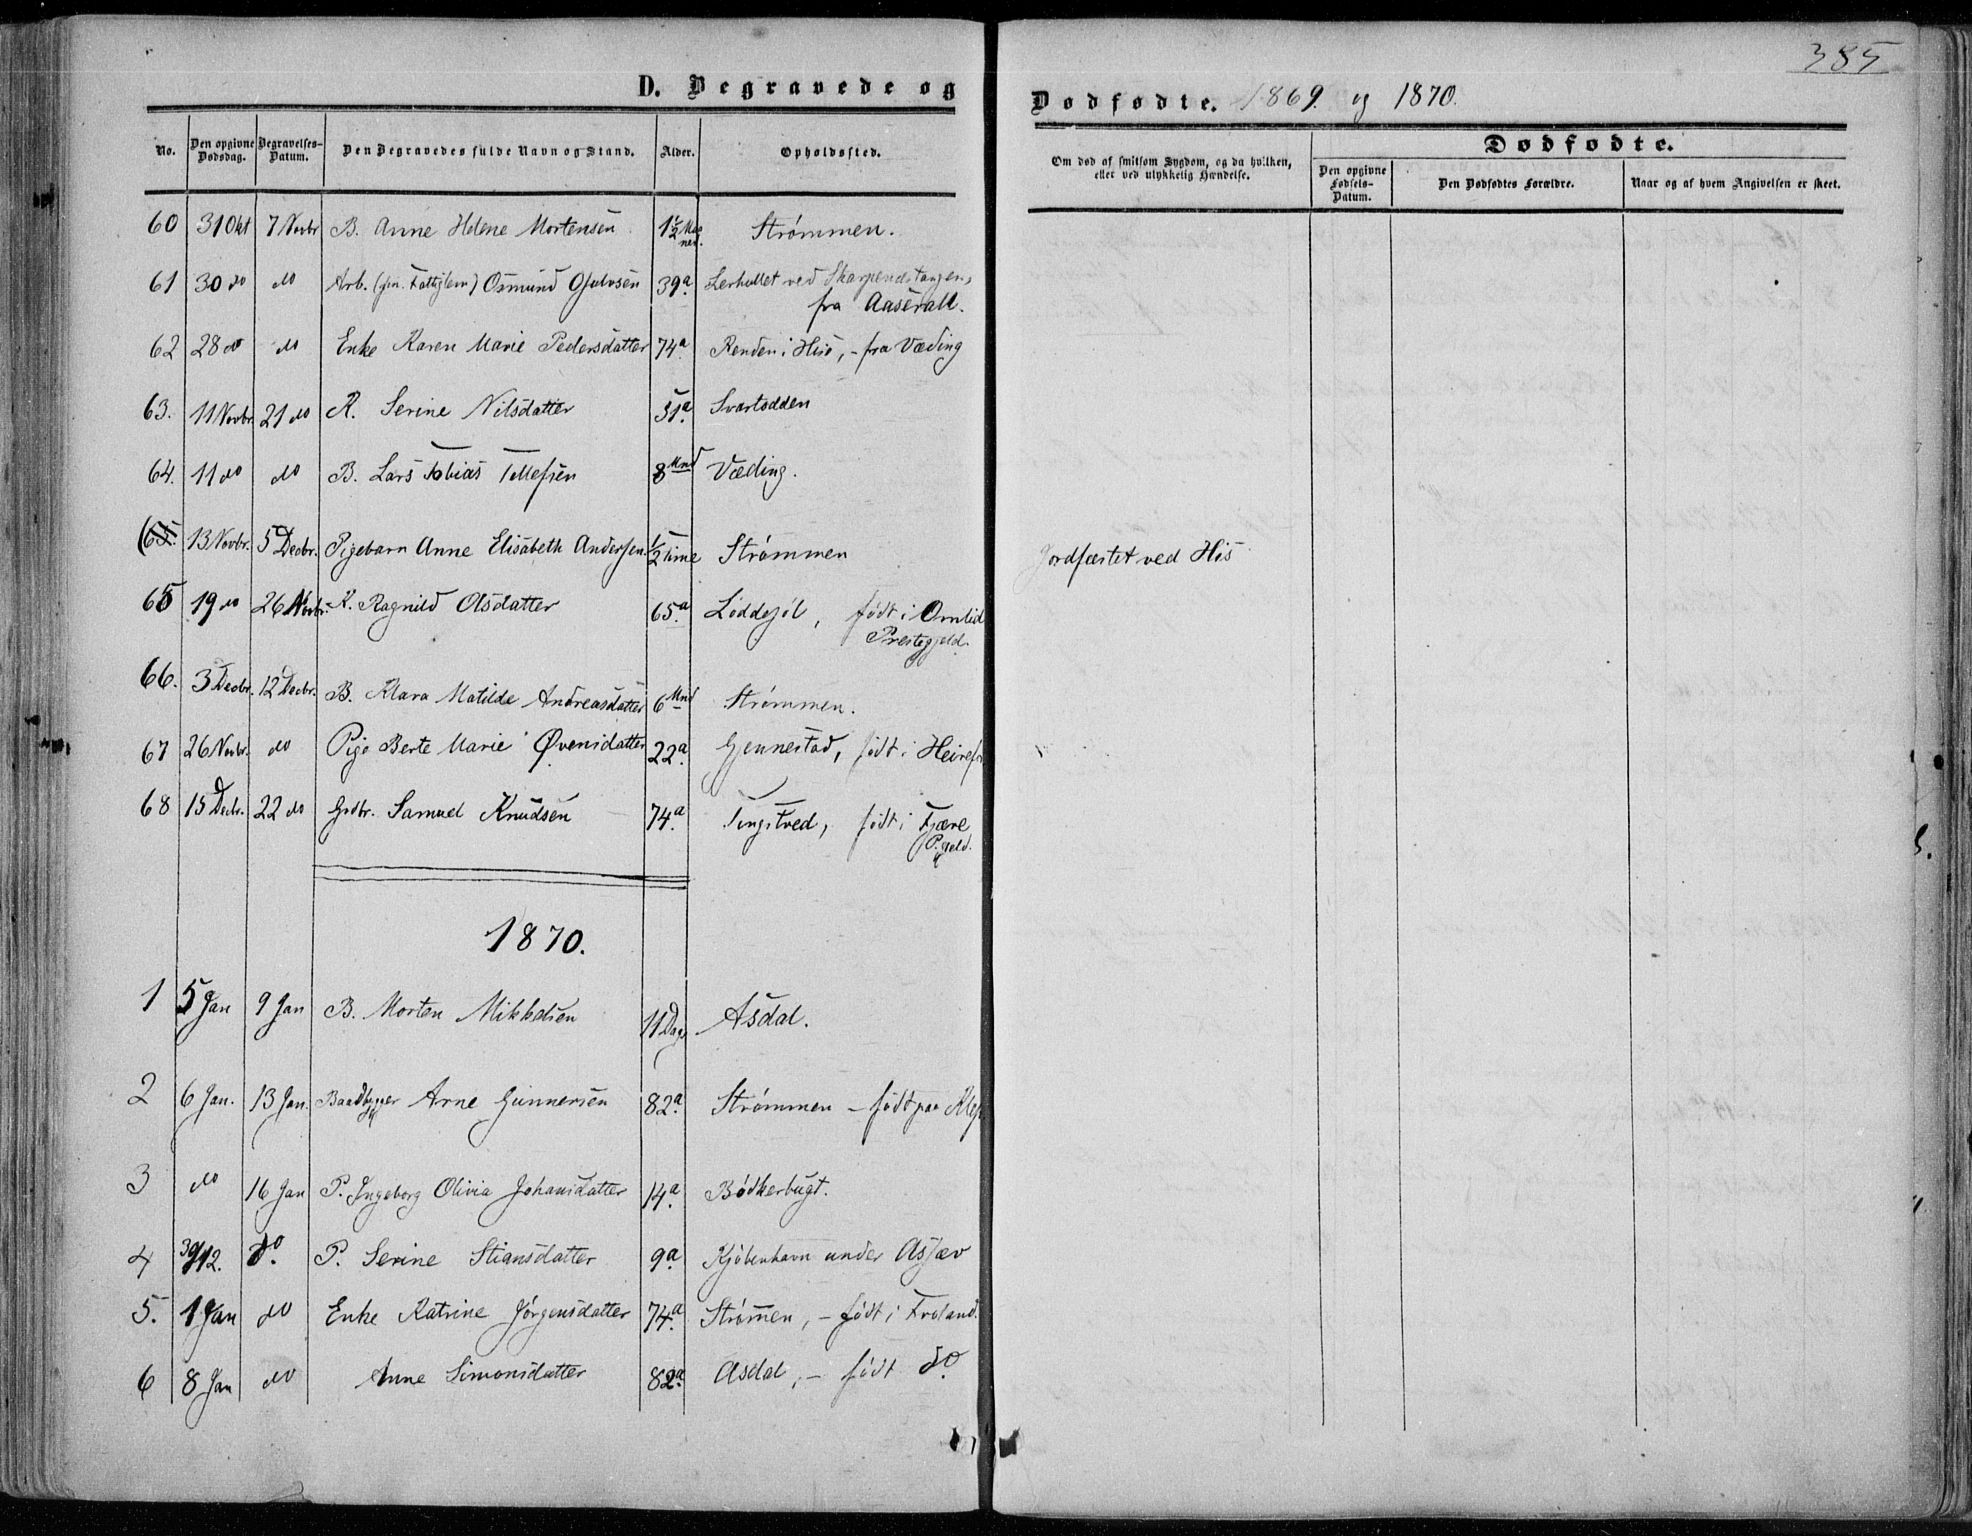 385
D. Begravede og
Dødfødte. 1869. og 1870.
No. Den opgivne Dødsdag. Begravelses-Datum. Den Begravedes fulde Navn og Stand. Alder. Opholdssted.
Om død af smitsom Sygdom, og da hvilken, eller ved ulykkelig Hændelse.
Dødfødte.
Den opgivne Fødsels-Datum. Den Dødfødtes Forældre. Naar og af hvem Angivelsen er skeet.
60 31 Okt 7 Novbr B. Anne Helene Mortensen 1½ Maaneder. Strømmen.
61 30 do do Arb. Osmund 39a. ved
fra Aaserall.
62 28 do do Enke Karen Marie Pedersdatter 74a. Renden i Hisø, - fra Væding
63. 11 Novbr. 21 do K. Serine Nilsdatter 51a. Svartodden
64. 11 do do B. Lars Tobias Tellefsen 8 Mnd Væding.
(65. 13 Novbr. 5 Decbr. Pigebarn Anne Elisabeth Andersen. ½ time Strømmen Jordfæstet ved His
65 19 do 26 Novbr. K. Ragnild Olsdatter 65a. Løddesøl, født i Omlid
Prestegjeld.
66. 3 Decbr. 12 Decbr. B. Klara Matilde Andreasdatter 6 Mnd Strømmen.
67 26 Novbr. do Pige Berte Marie Øvensdatter 22a. Gjennestad, født i
68 15 Decbr. 22 do Grdbr. Samuel Knudsen 74a. Tingstved, født i Fjære
P.gjeld.
1870.
1 5 Jan 9 Jan B. Morten Mikkelsen 11 Dage Asdal.
2 6 Jan. 13 Jan. Baadbygger Arne Gunnersen 82a. Strømmen - født paa
3 do 16 Jan P. Ingeborg Olivia Johansdatter 14a. Bødkerbugt.
4 30/12. do. P. Serine Stiansdatter 9a. Kjøbenhavn under Asjæv
5. 1 Jan do Enke Katrine Jørgensdatter 74a. Strømen, - født i Froland.
6 8 Jan do Anne Simonsdatter 82a. Asdal, - født do.